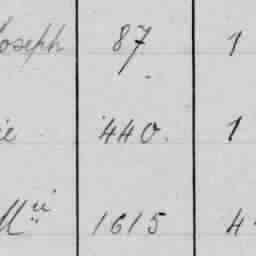 Joseph 87 1
ie 440. 1
M^lle 1615 4